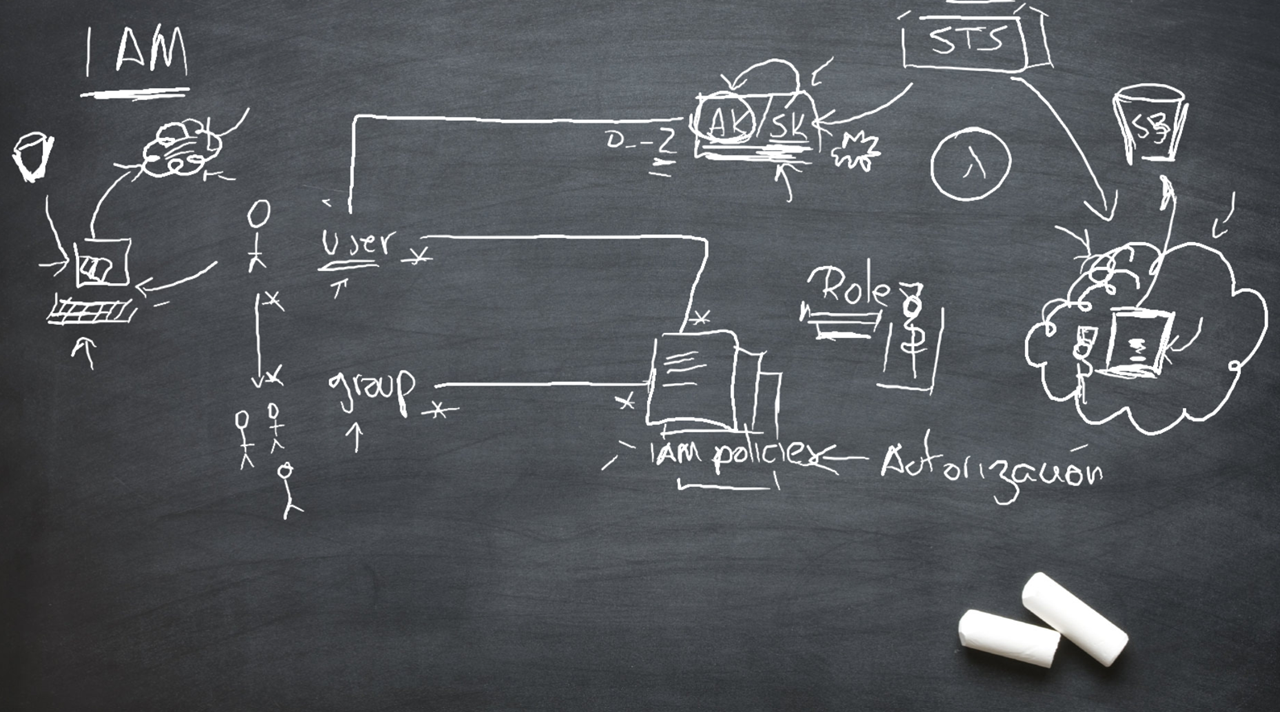 IAM
STS
AK/SK
0--2
S3
λ
User
Role
group
IAM policies
Autorización